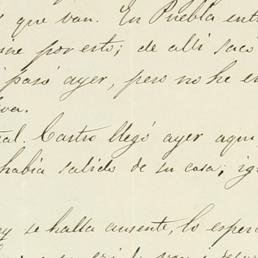 que van. En Puebla ent
por esto; de alli sacó
pasó ayer, pero no he en
va.
al. Castro llegó ayer aqui,
habia salido de su casa; ig
y se halla ausente, lo esper